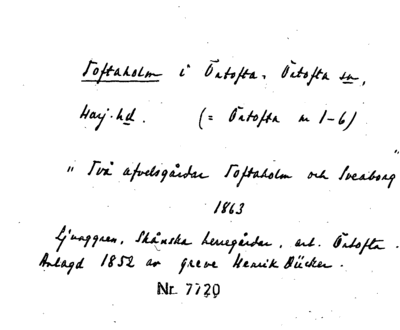 Toftaholm i Örtofta, Örtofta sn,
Harj. hd. (= Örtofta nr 1-6)
" Två afvelsgårdar Toftaholm och Sveaborg "
1863
Ljunggren, Skånska herregårdar, art. Örtofta.
Anlagd 1852 av greve Henrik Dücker.
Nr. 7720